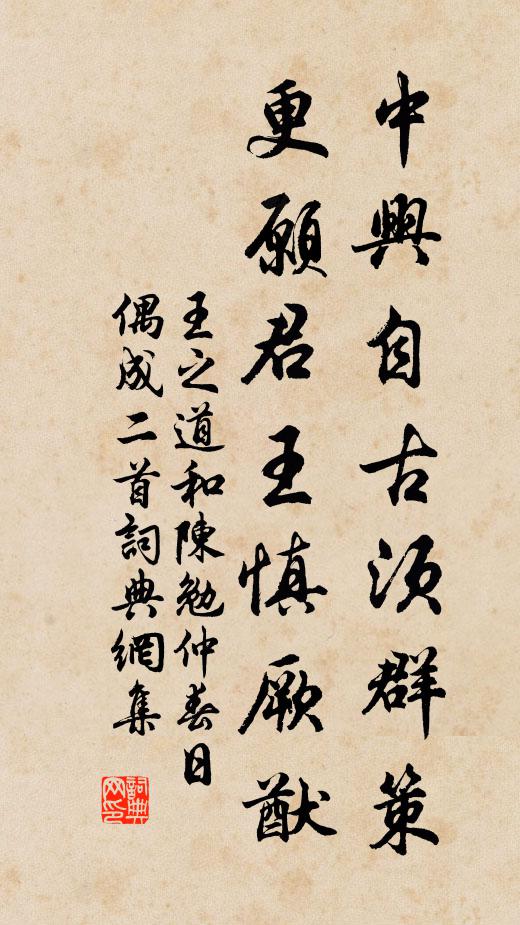 中興自古須群策
更願君王慎厥猷
王之道和陳勉仲春日
偶成二首詞典網集
詞典
网印